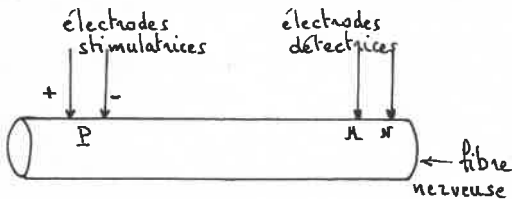 électrodes
stimulatrices
électrodes
détectrices
+ -
P
M N
fibre
nerveuse